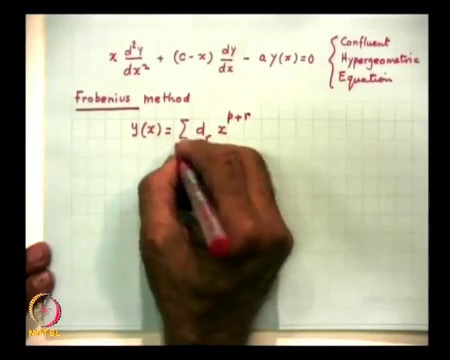 x d²y/dx² + (c-x) dy/dx - a y(x) = 0 { Confluent Hypergeometric Equation
Frobenius method
y(x) = Σ d_r x^{p+r}
NPTEL